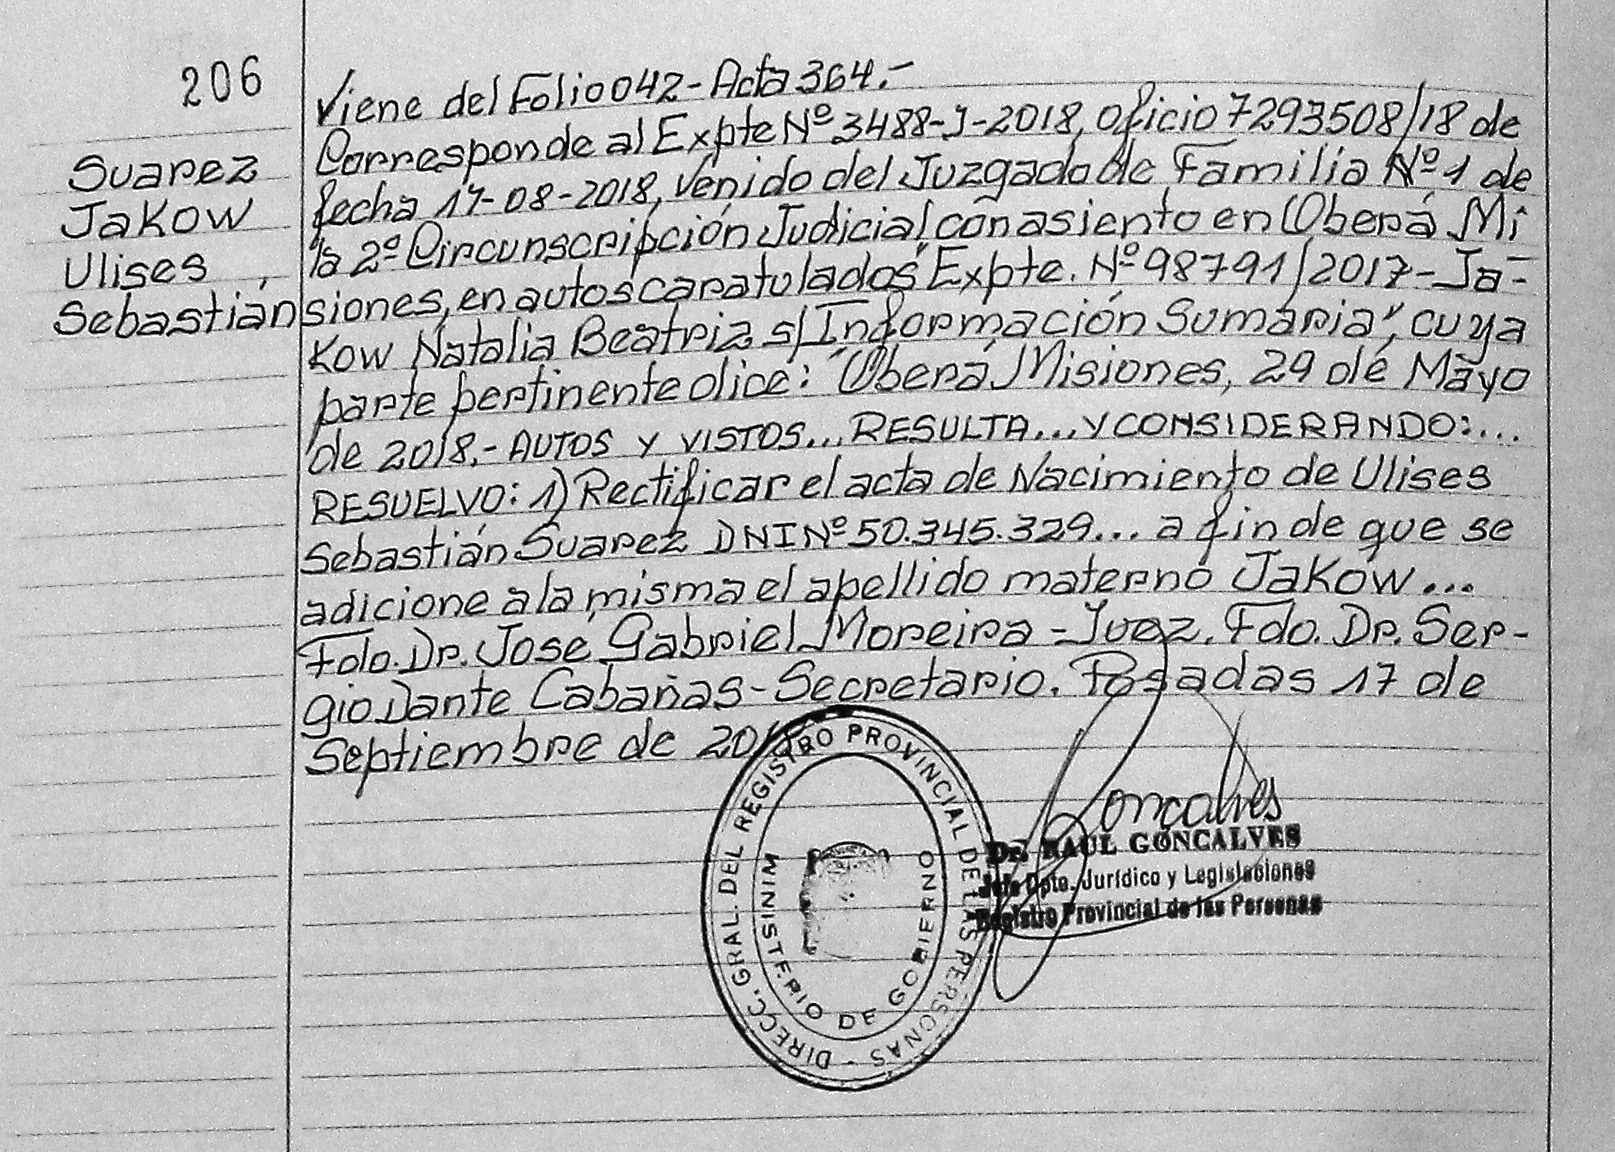 206
Suarez
Jakow
Ulises
Sebastián
Viene del Folio 042-Acta 364.-
Corresponde al Expte Nº 3488-J-2018, oficio 7293508/18 de
fecha 17-08-2018, venido del Juzgado de Familia Nº 1 de
la 2º Circunscripción Judicial con asiento en Oberá Mi
siones, en autos caratulados "Expte. Nº 98791/2017-Ja-
kow Natalia Beatriz s/Información Sumaria", cuya
parte pertinente dice: "Oberá, Misiones, 29 de Mayo
de 2018.- AUTOS Y VISTOS... RESULTA... Y CONSIDERANDO:...
RESUELVO: 1) Rectificar el acta de Nacimiento de Ulises
Sebastián Suarez DNI Nº 50.345.329... a fin de que se
adicione a la misma el apellido materno Jakow...
Fdo. Dr. José Gabriel Moreira - Juez. Fdo. Dr. Ser-
gio Dante Cabañas - Secretario. Posadas 17 de
Septiembre de
DIRECC. GRAL. DEL REGISTRO PROVINCIAL DE LAS PERSONAS -
MINISTERIO DE GOBIERNO
Goncalves
Dr. RAUL GONCALVES
Jefe Dpto. Jurídico y Legislaciones
Registro Provincial de las Personas